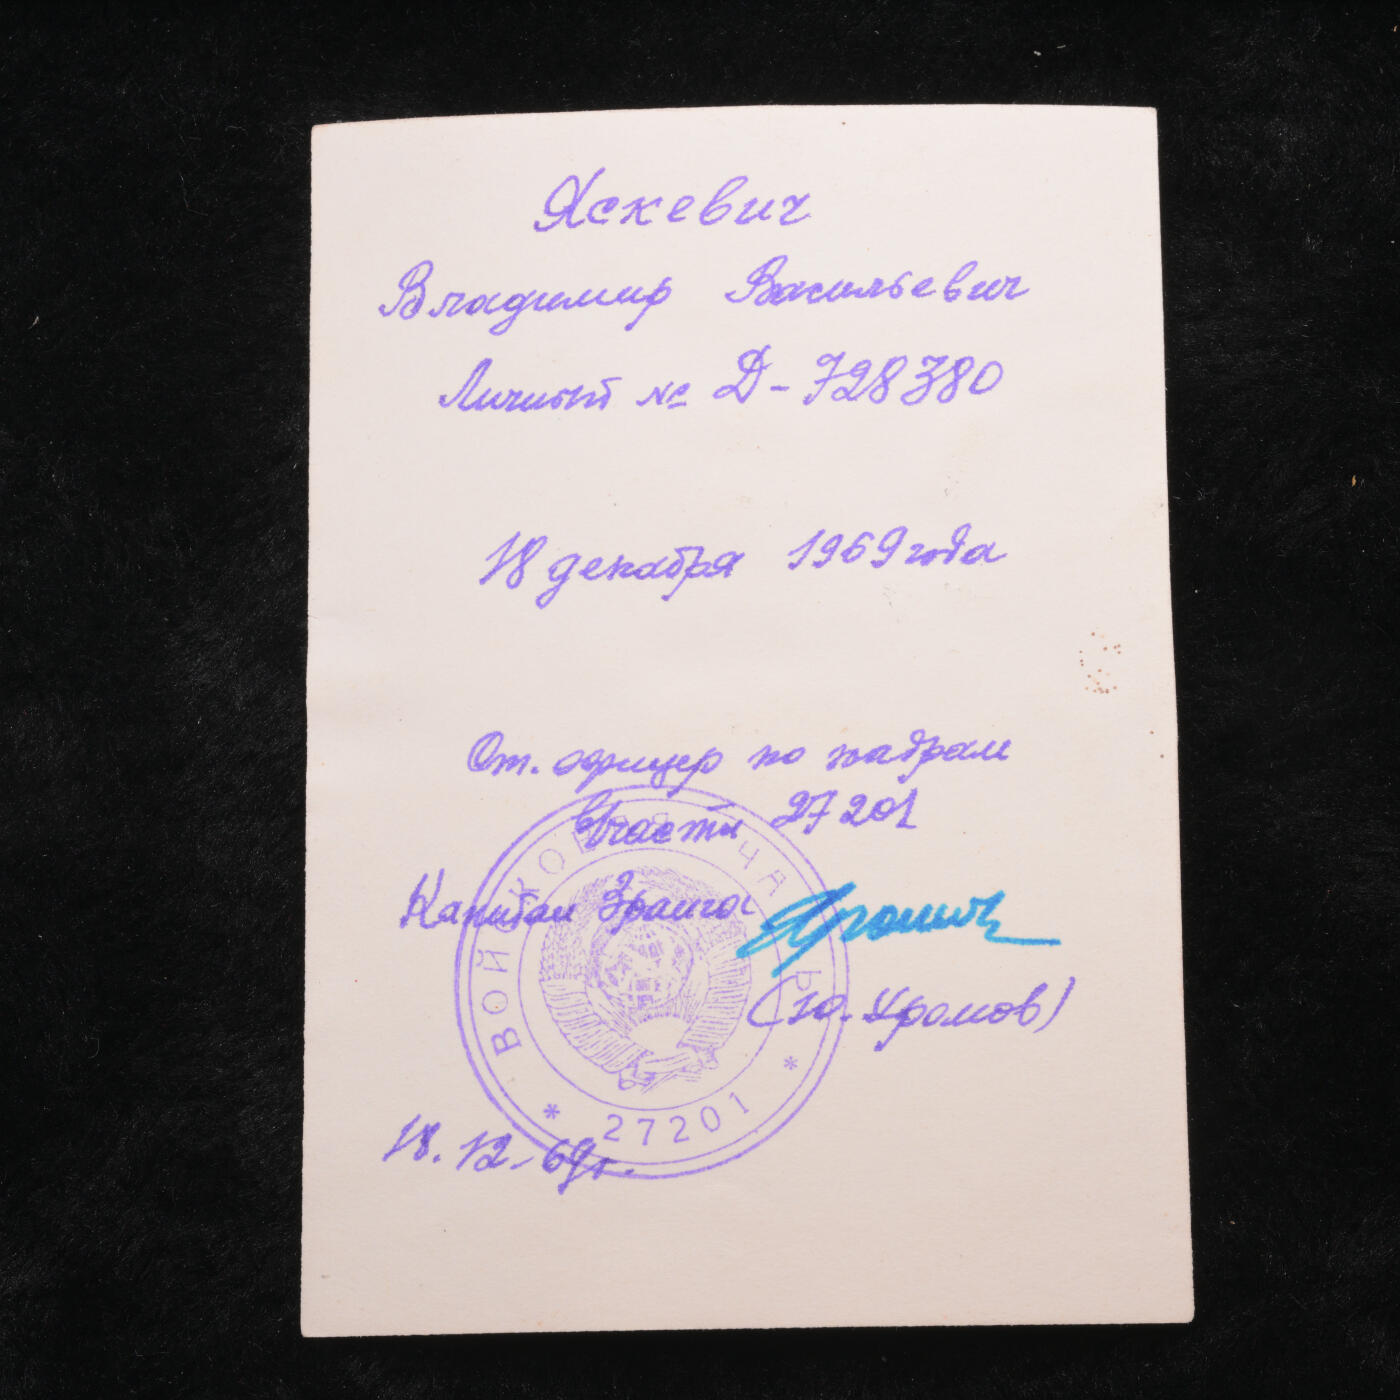 Яскевич
Владимир Васильевич
Личный № Д-728380
18 декабря 1969 года
Ст. офицер по кадрам
в/части 27201
Капитан 3 ранга
(Ю. Хромов)
ВОЙСКОВАЯ ЧАСТЬ
* 27201 *
18.12-69г.